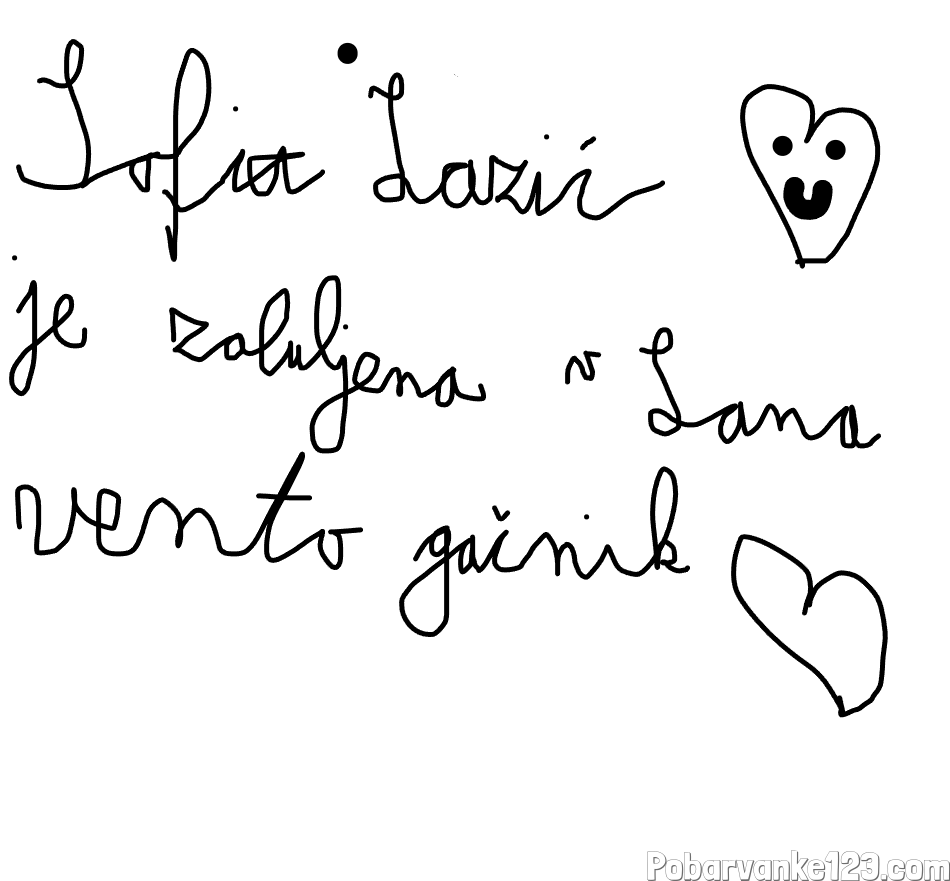 Sofia Lazić
je zaluljena v Lana
vento gačnik
Pobarvanke123.com